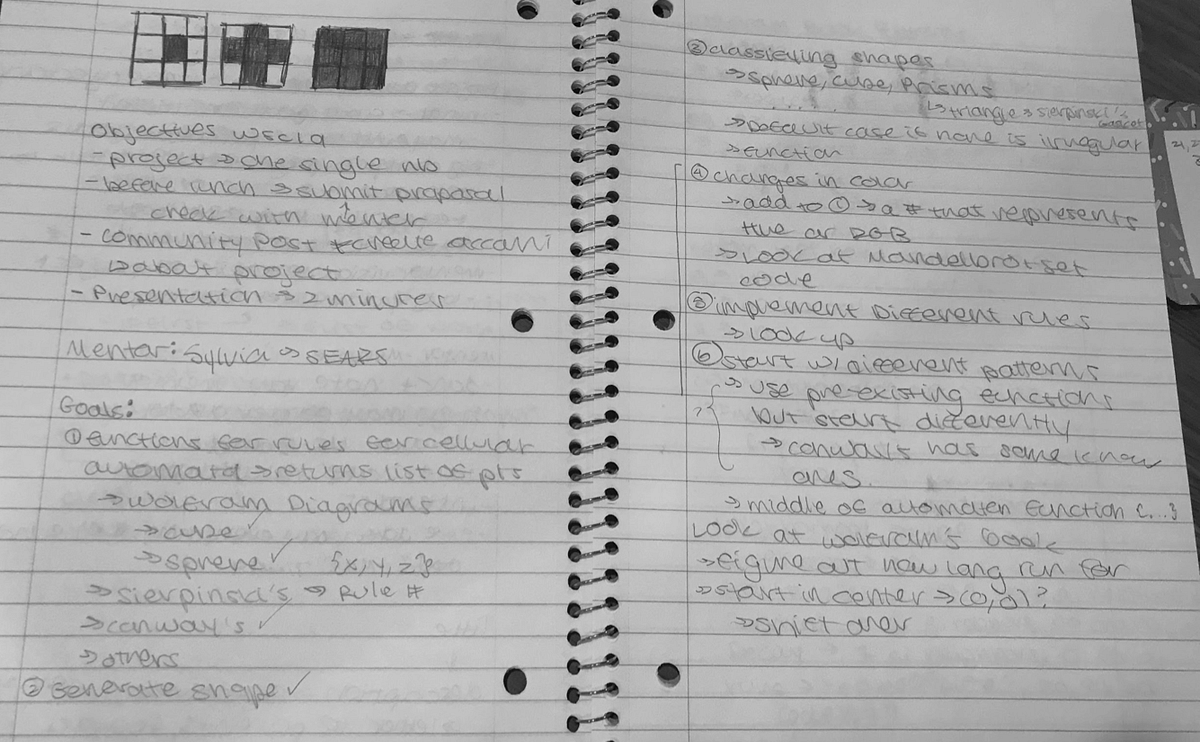 Objectives WSC19
- project → one single nb
- before lunch → submit proposal
check with mentor
- community post → create account
↳ about project
- Presentation → 2 minutes
Mentor: Sylvia → SEARS
Goals:
① functions for rules for cellular
automata → returns list of pts
→ Wolfram Diagrams
→ cube ✓
→ sphere ✓ {x, y, z}
→ Sierpinski's → Rule #
→ Conway's ✓
→ others
② Generate shape ✓
③ classifying shapes
→ sphere, cube, Prisms
↳ triangle → Sierpinski's
Gasket
→ Default case if none is irregular
→ function
④ changes in color
→ add to ① → a # that represents
hue or RGB
→ Look at Mandelbrot set
code
⑤ implement Different rules
→ Look up
⑥ start w/ different patterns
→ use pre-existing functions
but start differently
→ Conway's has some know
ones.
→ middle of automaton function {...}
Look at Wolfram's book
→ figure out how long run for
→ start in center → (0,0)?
→ shift over